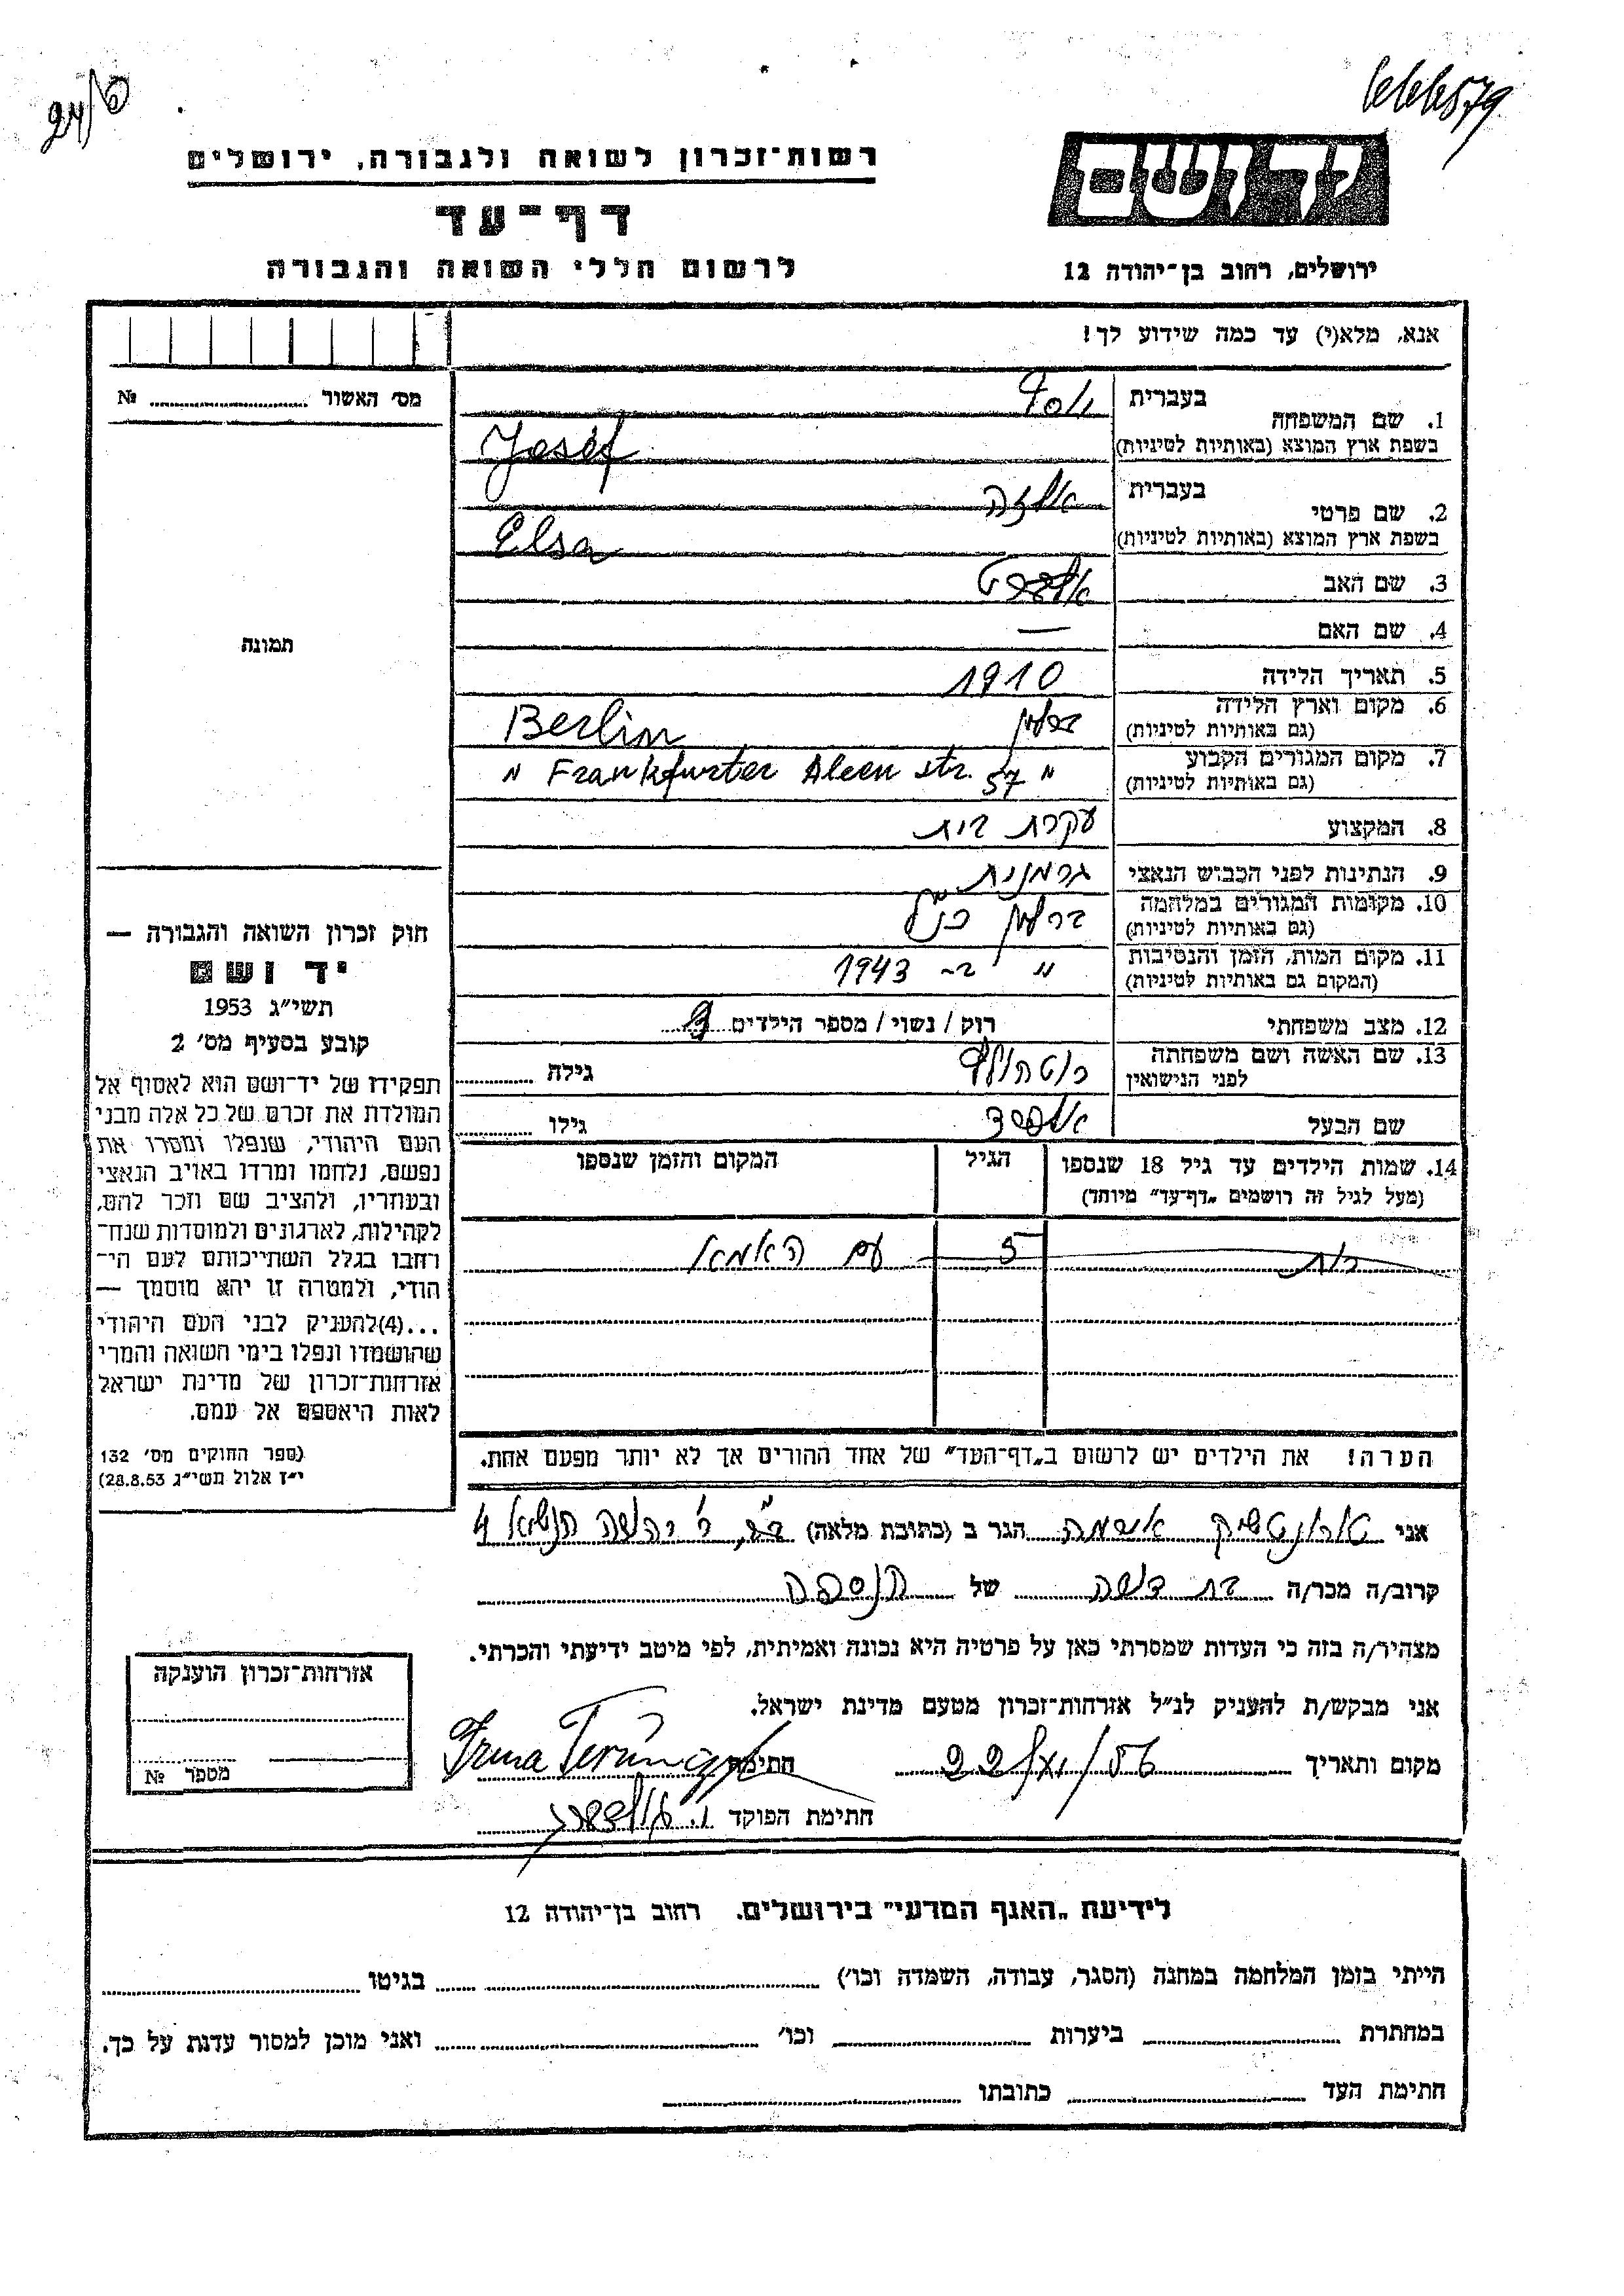 24/6
רשות־זכרון לשואה ולגבורה, ירושלים
דף־עד
לרשום חללי השואה והגבורה
ידושם
ירושלים, רחוב בן־יהודה 12
אנא, מלא(י) עד כמה שידוע לך!
מס׳ האשור № 
תמונה
1. שם המשפחה בעברית יוסף
בשפת ארץ המוצא (באותיות לטיניות) Josef
2. שם פרטי בעברית אלזה
בשפת ארץ המוצא (באותיות לטיניות) Elsa
3. שם האב
4. שם האם —
5. תאריך הלידה 1910
6. מקום וארץ הלידה ברלין Berlin
(גם באותיות לטיניות)
7. מקום המגורים הקבוע " Frankfurter Aleen str. 57 "
(גם באותיות לטיניות)
8. המקצוע עקרת בית
9. הנתינות לפני הכבוש הנאצי גרמנית
10. מקומות המגורים במלחמה ברלין כנ"ל
(גם באותיות לטיניות)
11. מקום המות, הזמן והנסיבות " ב- 1943
(המקום גם באותיות לטיניות)
12. מצב משפחתי רוק / נשוי / מספר הילדים
13. שם האשה ושם משפחתה לפני הנישואין רוטהולץ גילה
שם הבעל גילו
14. שמות הילדים עד גיל 18 שנספו הגיל המקום והזמן שנספו
(מעל לגיל זה רושמים „דף־עד” מיוחד)
רות 5 עם האמא
הערה! את הילדים יש לרשום ב„דף־העד” של אחד ההורים אך לא יותר מפעם אחת.
חוק זכרון השואה והגבורה —
יד ושם
תשי״ג 1953
קובע בסעיף מס׳ 2
תפקידו של יד־ושם הוא לאסוף אל
המולדת את זכרם של כל אלה מבני
העם היהודי, שנפלו ומסרו את
נפשם, נלחמו ומרדו באויב הנאצי
ובעוזריו, ולהציב שם וזכר להם,
לקהילות, לארגונים ולמוסדות שנח־
רחבו בגלל השתייכותם לעם הי־
הודי, ולמטרה זו יהא מוסמך —
...(4)להעניק לבני העם היהודי
שהושמדו ונפלו בימי השואה והמרי
אזרחות־זכרון של מדינת ישראל
לאות היאספם אל עמם.
(ספר החוקים מס׳ 132
י״ז אלול תשי״ג 28.8.53)
אני אירמה הגר ב (כתובת מלאה) ר׳ יהודה הנשיא 4
קרוב/ה מכר/ה בת דודה של הנספה
מצהיר/ה בזה כי העדות שמסרתי כאן על פרטיה היא נכונה ואמיתית, לפי מיטב ידיעתי והכרתי.
אני מבקש/ת להעניק לנ״ל אזרחות־זכרון מטעם מדינת ישראל.
מקום ותאריך 22/VI/56 חתימה Irma
חתימת הפוקד
אזרחות־זכרון הוענקה
מספר №
לידיעת „האגף המדעי” בירושלים. רחוב בן־יהודה 12
הייתי בזמן המלחמה במחנה (הסגר, עבודה, השמדה וכו׳) בגיטו
במחתרת ביערות וכו׳ ואני מוכן למסור עדות על כך.
חתימת העד כתובתו